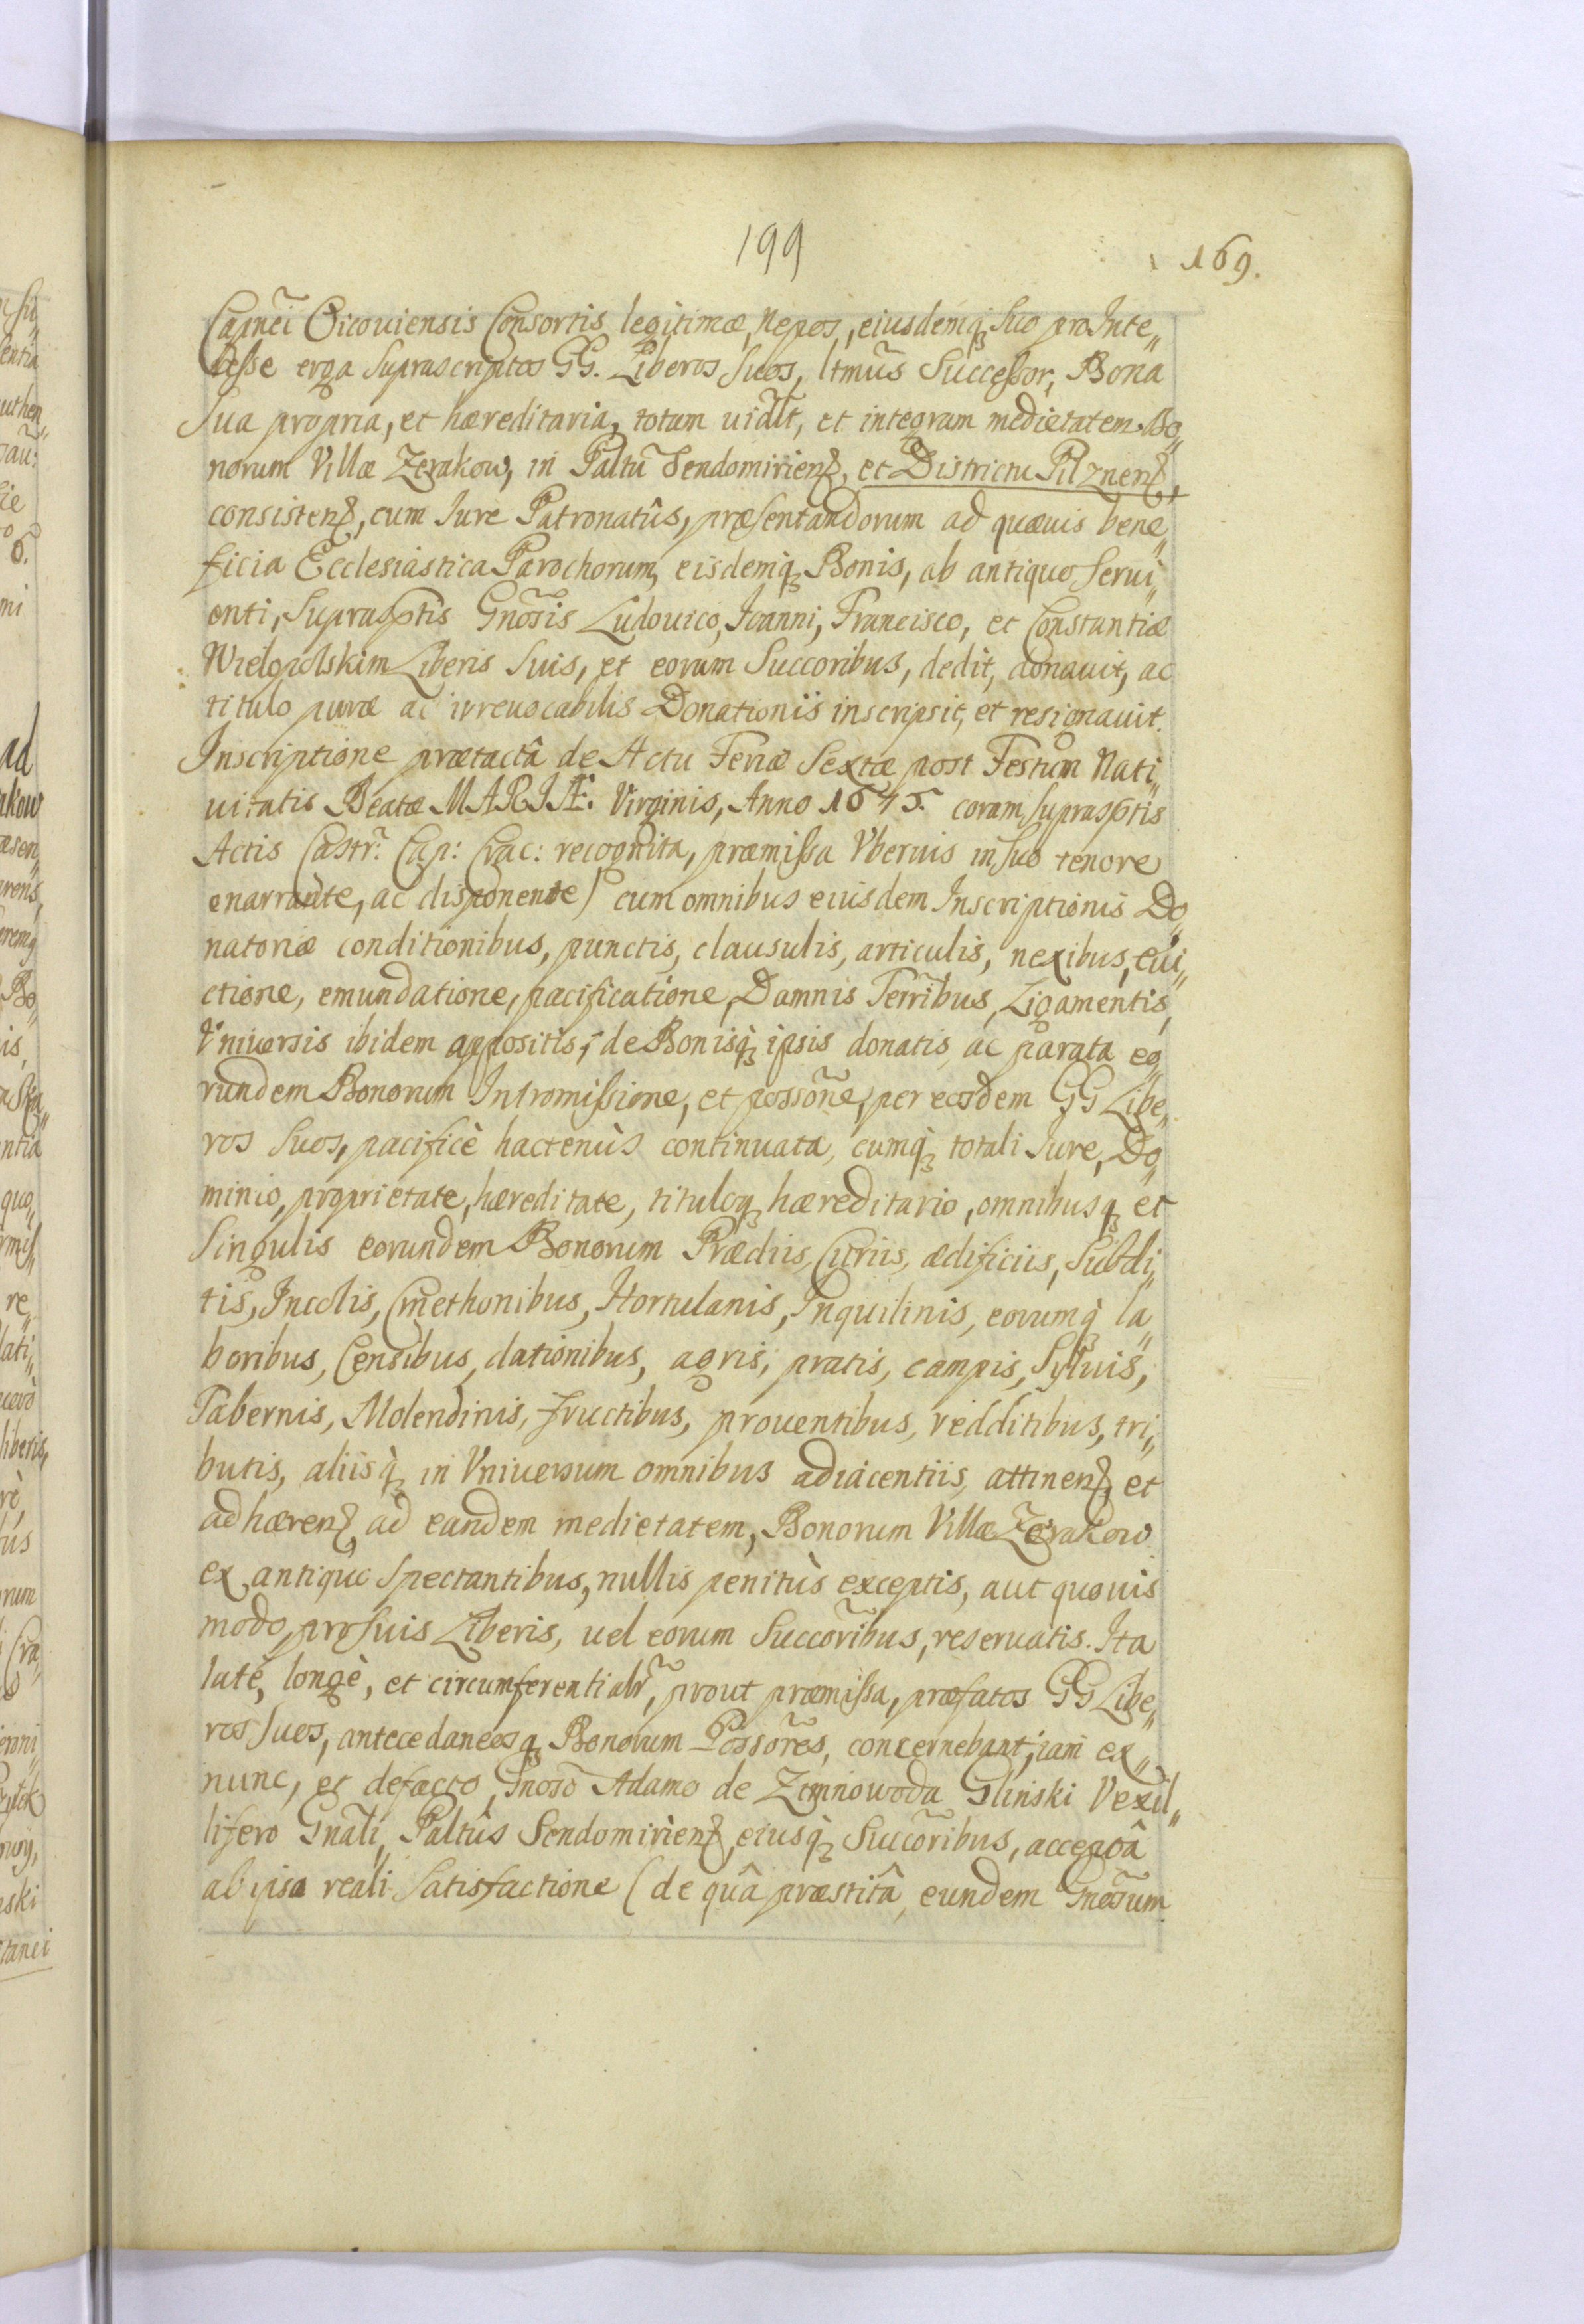 199
169.
Capnei Oicouiensis Consortis legitimæ, Nepos, eiusdemq; suo pro Inte„
resse erga suprascriptos GG. Liberos suos, ltmus Successor, Bona
sua propria, et hæreditaria, totam uidlt, et integram medietatem Bo„
norum Villæ Zerakow, in Paltu Sendomiriens, et Districtu Pilznens,
consistens, cum Iure Patronatûs, præsentandorum ad quæuis bene„
ficia Ecclesiastica Parochorum, eisdemq; Bonis, ab antiquo serui„
enti, suprasptis Gnosis Ludouico, Ioanni, Francisco, et Constantiæ
Wielgolskim Liberis suis, et eorum Succoribus, dedit, donauit, ac
titulo puræ ac irreuocabilis Donationis inscripsit, et resignauit.
Inscriptione prætactâ de Actu Feriæ Sextæ post Festum Nati„
uitatis Beatæ MARIÆ. Virginis, Anno 1645. coram suprasptis
Actis Castr: Cap: Crac: recognita, præmissa Vberius in suo tenore
enarrante, ac disponente) cum omnibus eiusdem Inscriptionis Do„
natoriæ conditionibus, punctis, clausulis, articulis, nexibus, eui„
ctione, emundatione, pacificatione, Damnis Terribus, Ligamentis,
Vniuersis ibidem appositis, de Bonisq; ipsis donatis, ac parata eo„
rundem Bonorum Intromissione, et possone, per eosdem GG Libe„
ros suos, pacificè hactenùs continuata, cumq; totali Iure, Do„
minio, proprietate, hæreditate, tituloq; hæreditario, omnibusq; et
singulis eorundem Bonorum Prædiis, Curiis, ædificiis, Subdi„
tis, Incolis, Cmethonibus, Hortulanis, Inquilinis, eorumq; la„
boribus, Censibus, dationibus, agris, pratis, campis, Syluis,
Tabernis, Molendinis, fructibus, prouentibus, redditibus, tri„
butis, aliisq; in Vniuersum omnibus adiacentiis, attinens, et
adhærens, ad eandem medietatem, Bonorum Villæ Zerakow
ex antiquo spectantibus, nullis penitùs exceptis, aut quouis
modo, pro suis Liberis, uel eorum Succoribus, reseruatis. Ita
latè, longè, et circumferentialr, prout præmissa, præfatos GG Libe„
ros suos, antecedaneosq; Bonorum Possores, concernebant, iam ex„
nunc, et defacto, Gnoso Adamo de Zimnowoda Glinski Vexil„
lifero Gnali, Paltûs Sendomiriens, eiusq; Succoribus, acceptâ
ab ipso reali satisfactione (de quâ præstitâ, eundem Gnosum